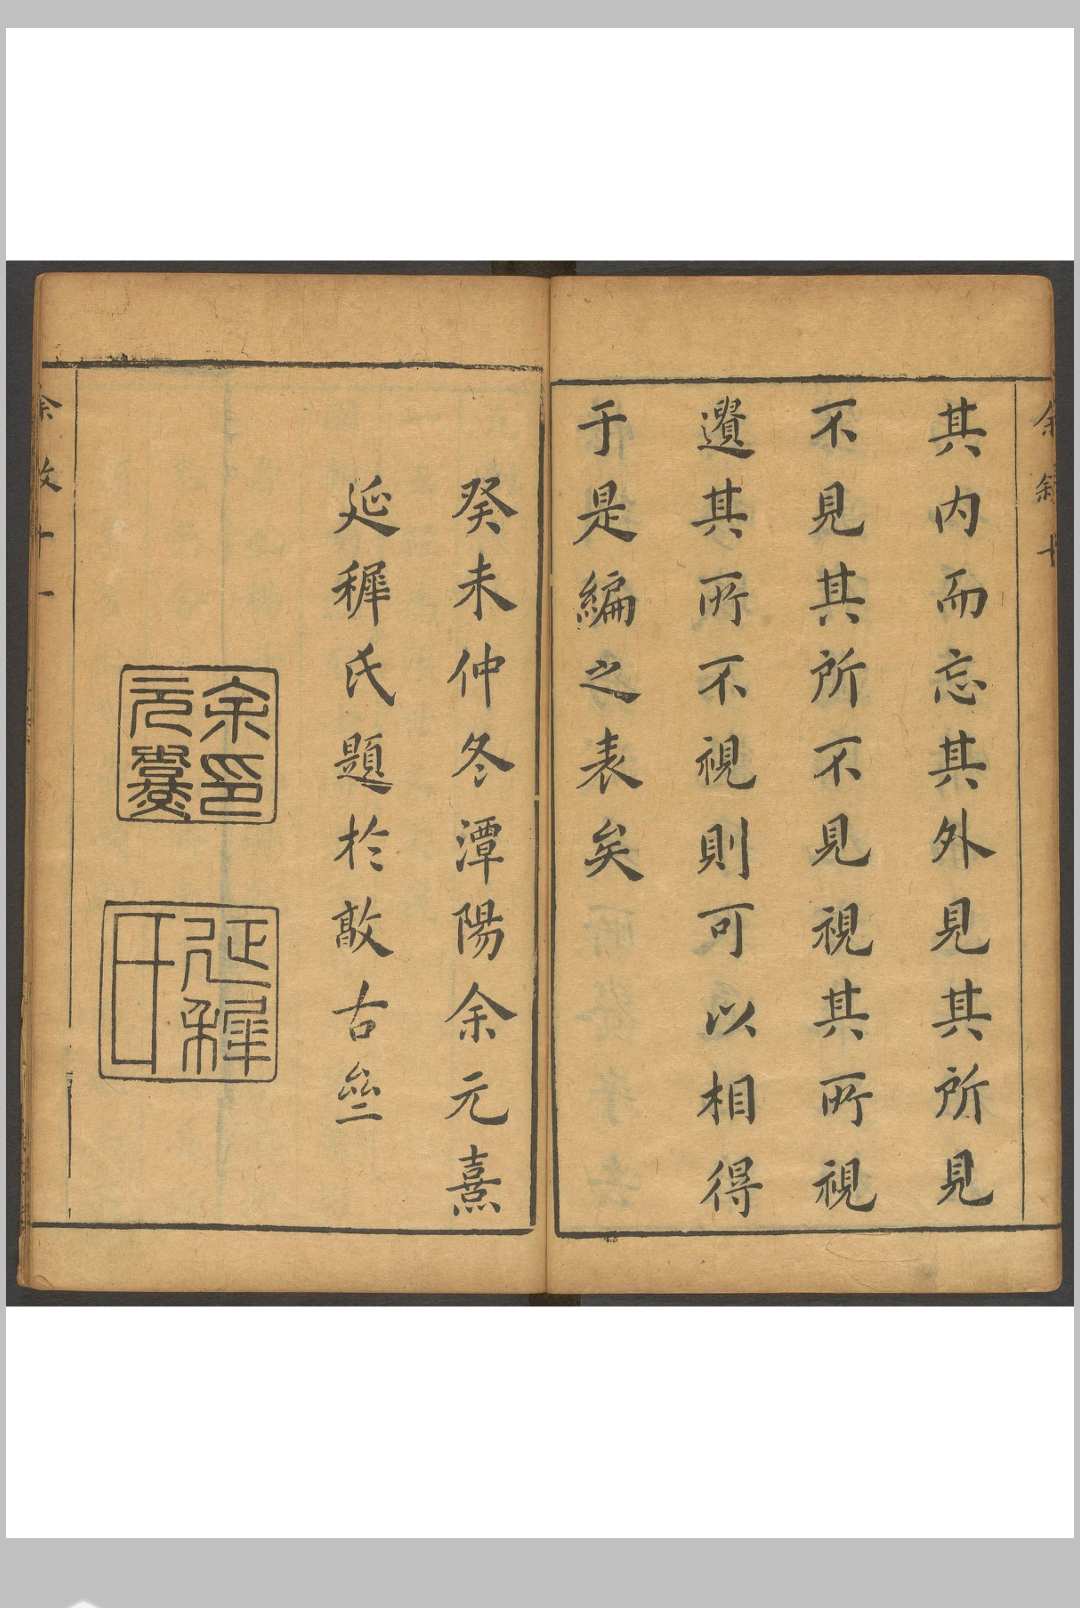 余敘 十
其内而忘其外見其所見
不見其所不見視其所視
遺其所不視則可以相得
于是編之表矣
癸未仲冬潭陽余元熹
延穉氏題於敢古
余印元熹
延穉氏
余敘 十一